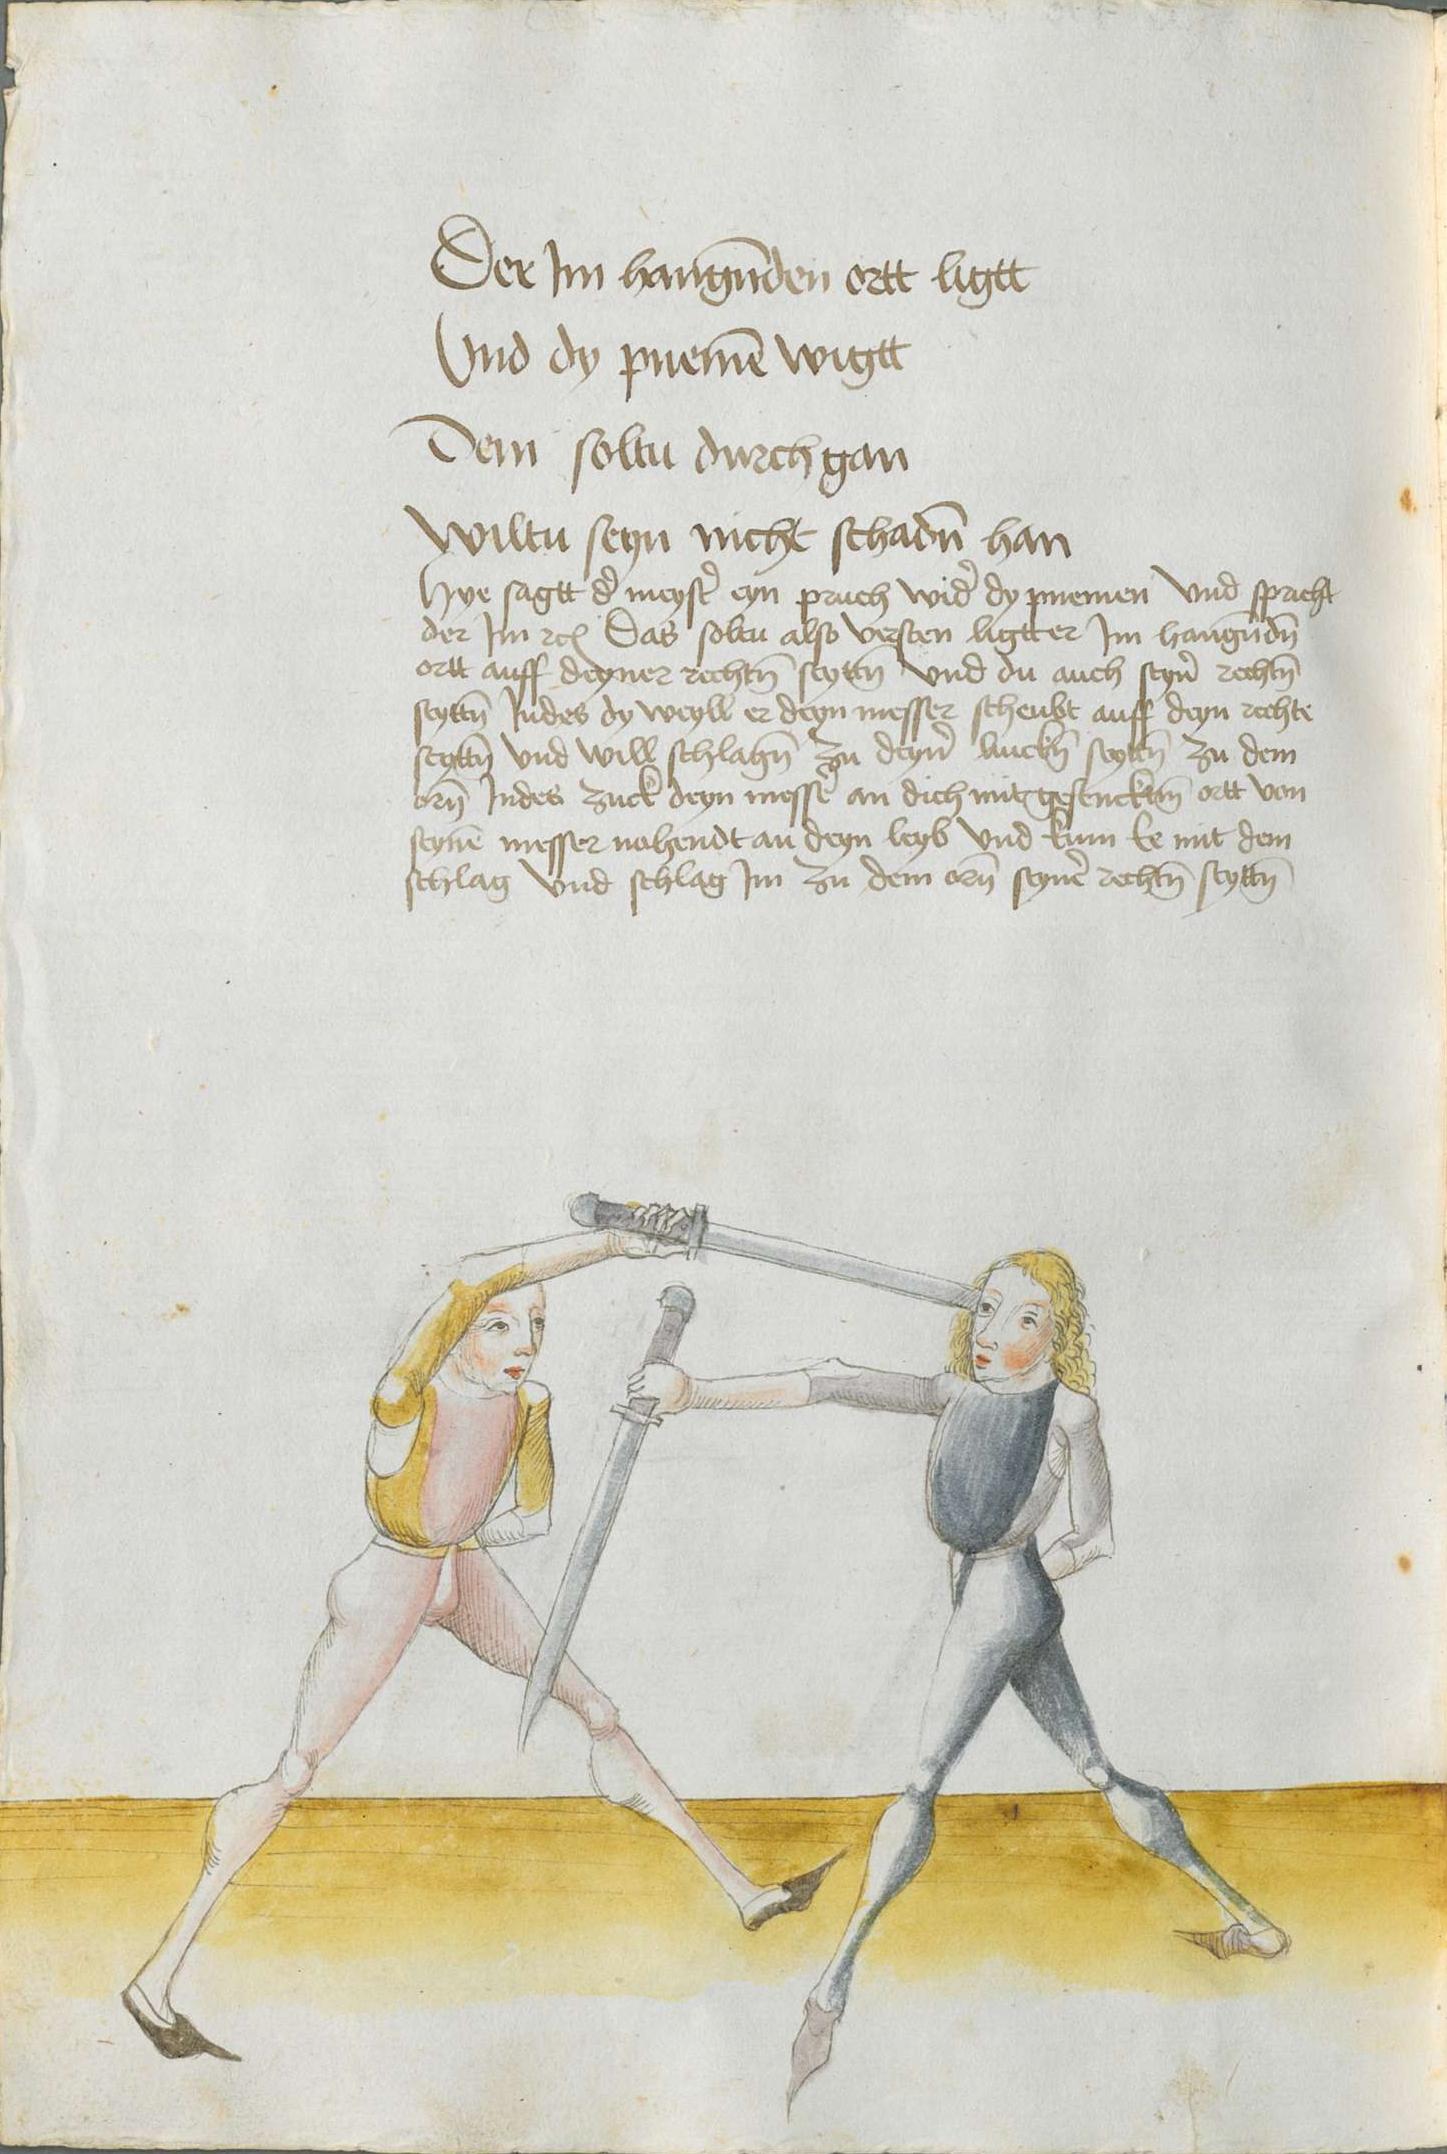 Der Im hangn̄den ortt ligtt
Vnd dy pnemē wigtt
Dem soltu durchgan
Wiltu seyn nicht schadn̄ han
Hye sagtt d̾ meyst̾ eyn pruch wid̾ dy pnemen Vnd spricht
der Im rc͛ Das soltu also versten ligtt er Im hangn̄dn̄
ortt auff deyner rechtn̄ seyttn̄ Vnd du auch seyn̾ rechtn̄
seyttn̄ Indes dy weyll er deyn messer scheubt auff deyn rechte
seyttn̄ Vnd will schlahn̄ zu deyn̾ linckn̄ seyttn̄ zu dem
orn̄ Indes zuck deyn mess̾ an dich mit gesencktm̄ ortt von
seynē messer nahendt an deyn leyb Vnd kum ee mit dem
schlag Vnd schlag Im zu dem orn̄ seyn̾ rechtn̄ seyttn̄